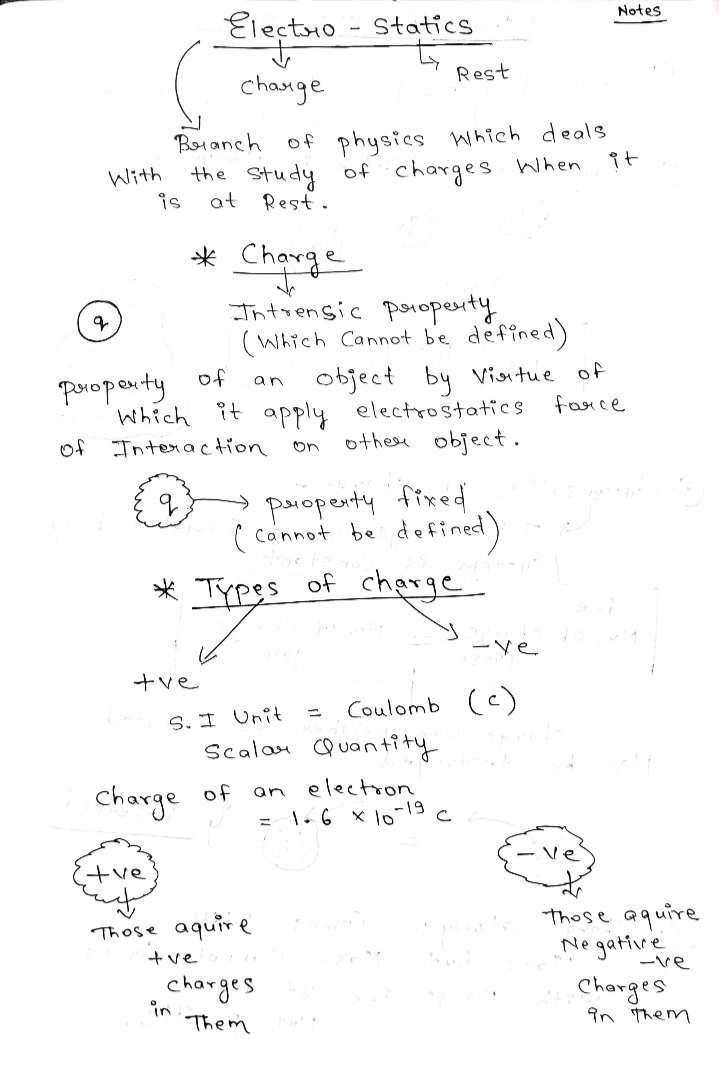 Notes
Electro - Statics
charge
Rest
Branch of physics Which deals
With the study of charges When it
is at Rest.
* Charge
q
Intrensic property
(Which Cannot be defined)
property of an object by Virtue of
Which it apply electrostatics force
of Interaction on other object.
q → property fixed
(cannot be defined)
* Types of charge
-ve
+ve
S.I Unit = Coulomb (c)
Scalar Quantity
Charge of an electron
= 1.6 × 10⁻¹⁹ c
+ve
Those aquire
+ve
charges
in Them
-ve
Those aquire
Negative
-ve
Charges
in Them